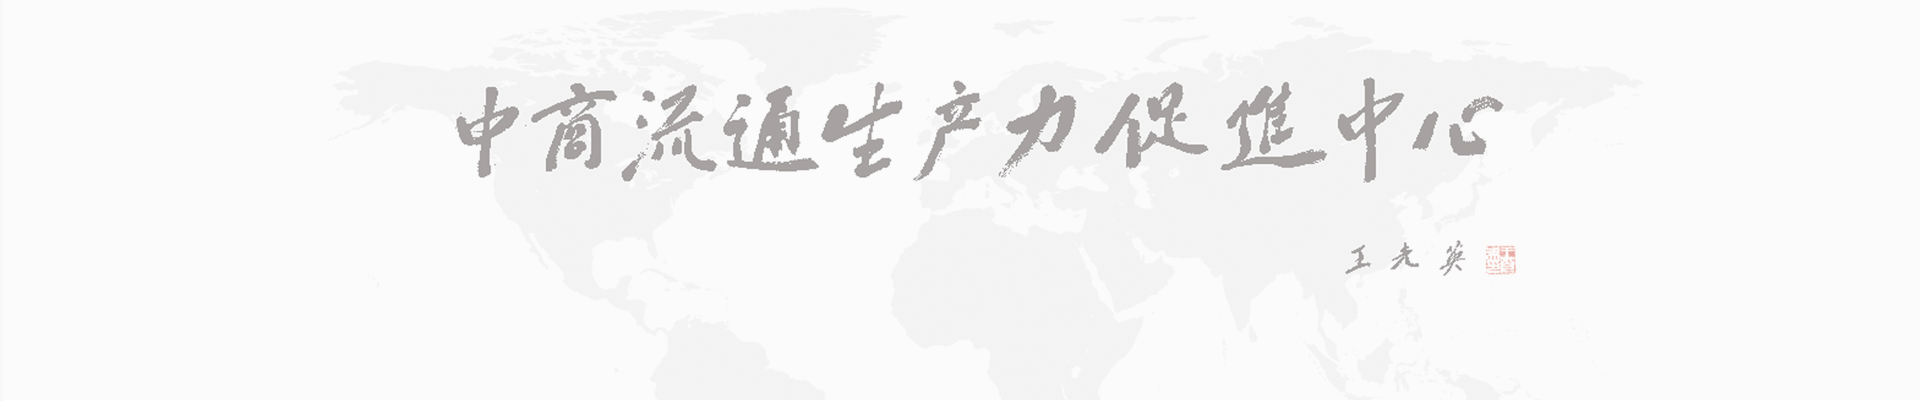 中商流通生产力促進中心
王先英